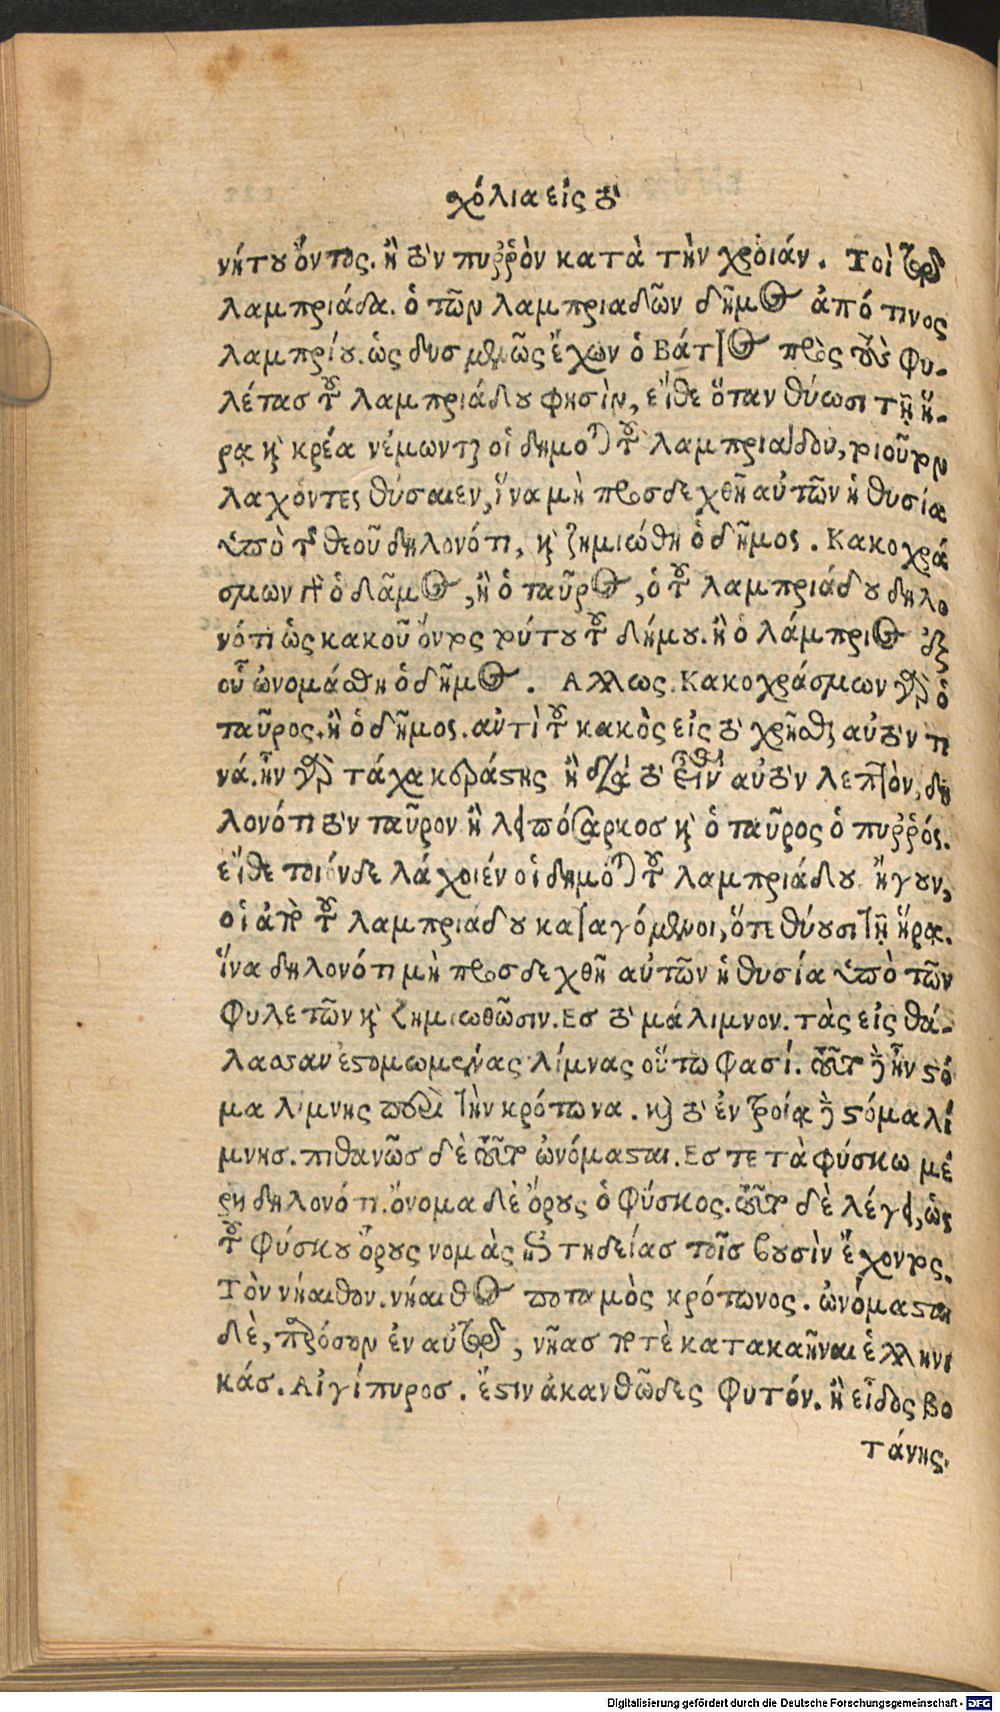 χόλια εἰς τὸ
νήτου ὄντος. ἢ τὸν πυῤῥὸν κατὰ τὴν χροιάν. Τοὶ τῶ
λαμπριάδα. ὁ τῶν λαμπριαδῶν δῆμος ἀπό τινος
λαμπρίου. ὡς δυσμενῶς ἔχων ὁ Βάττος πρὸς τοὺς φυ-
λέτας τοῦ λαμπριάδου φησὶν, εἴθε ὅταν θύωσι τῇ ἥ-
ρᾳ καὶ κρέα νέμωνται οἱ δημόται τοῦ λαμπριάδου, τοιοῦτον
λαχόντες θύσαιεν, ἵνα μὴ προσδεχθῇ αὐτῶν ἡ θυσία
ὑπὸ τοῦ θεοῦ δηλονότι, καὶ ζημιωθῇ ὁ δῆμος. Κακοχρά
σμων γὰρ ὁ δᾶμος, ἢ ὁ ταῦρος, ὁ τοῦ λαμπριάδου δηλο
νότι ὡς κακοῦ ὄντος τούτου τοῦ δήμου. ἢ ὁ λάμπριος ἐξ
οὗ ὠνομάσθη ὁ δῆμος. Αλλως. Κακοχράσμων γὰρ ὁ
ταῦρος. ἢ ὁ δῆμος. αντὶ τοῦ κακὸς εἰς τὸ χρῆσθαι αὐτόν τι
νά. ἦν γὰρ τάχα κυράστης ἢ διὰ τὸ εἶναι αὐτὸν λεπτὸν, δη
λονότι τὸν ταῦρον ἢ λειπόσαρκος καὶ ὁ ταῦρος ὁ πυῤῥός.
εἴθε τοιόνδε λάχοιέν οἱ δημόται τοῦ λαμπριάδου. ἤγουν,
οἱ ἀπὸ τοῦ λαμπριάδου καταγόμενοι, ὅτε θύουσι τῇ ἥρᾳ.
ἵνα δηλονότι μὴ προσδεχθῇ αὐτῶν ἡ θυσία ὑπὸ τῶν
φυλετῶν καὶ ζημιωθῶσιν. Ες τὸ μάλιμνον. τὰς εἰς θά-
λασσαν ἐστομωμένας λίμνας οὕτω φασί. τοῦτο καὶ ἦν στό
μα λίμνης περὶ τὴν κρότωνα. καὶ τὸ ἐν τροίᾳ καὶ στόμα λί
μνης. πιθανῶς δὲ τοῦτο ὠνόμασται. Ες τε τὰ φύσκω μέ
ρη δηλονότι. ὄνομα δὲ ὄρους ὁ φύσκος. τοῦτο δὲ λέγει, ὡς
τοῦ φύσκου ὄρους νομὰς ἐπιτηδείας τοῖς βουσὶν ἔχοντος.
Τὸν νήαιθον. νήαιθος ποταμὸς κρότωνος. ὠνόμασται
δὲ, παρόσον ἐν αὐτῶ, νῆας ποτὲ κατακαῆναι ἑλληνι
κάς. Αἰγίπυρος. ἔστιν ἀκανθῶδες φυτόν. ἢ εἶδος βο
τάνης.
Digitalisierung gefördert durch die Deutsche Forschungsgemeinschaft - DFG